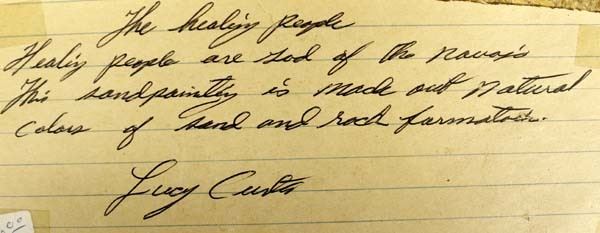 The healing people
Healing people are god of the Navajo
This sandpainting is made out natural
colors of sand and rock formation.
Lucy Curtis